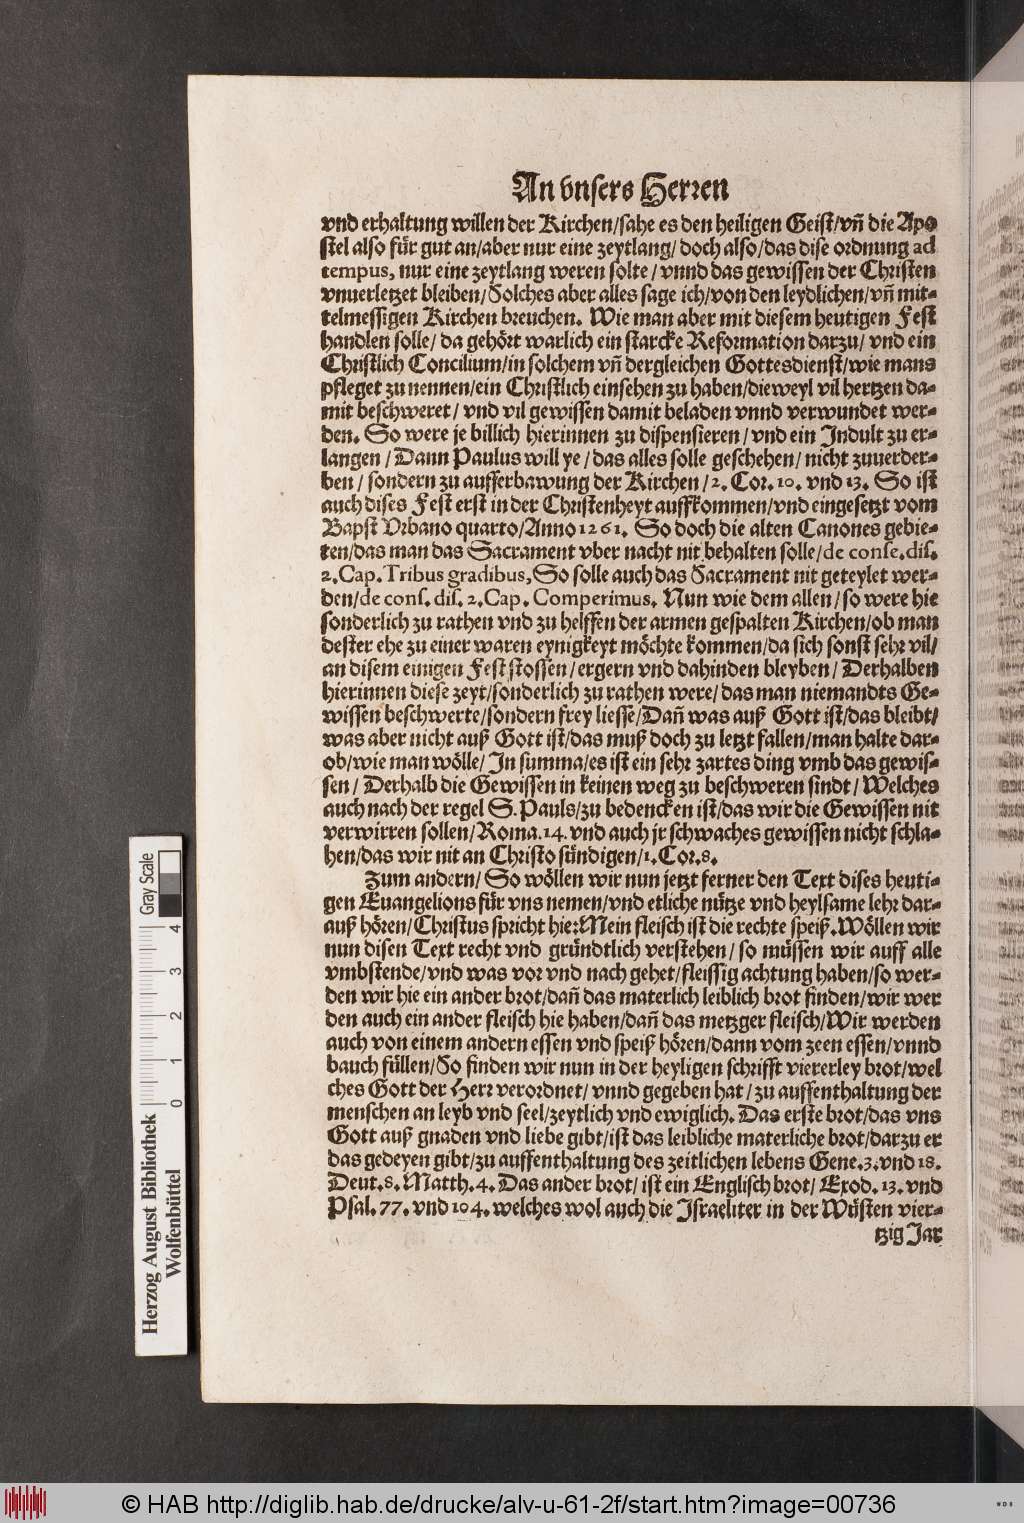 An vnsers Herren
vnd erhaltung willen der Kirchen/sahe es den heiligen Geist/vñ die Apo
stel also für gut an/aber nur eine zeytlang/ doch also/das dise ordnung ad
tempus, nur eine zeytlang weren solte/ vnnd das gewissen der Christen
vnuerletzet bleiben/Solches aber alles sage ich/von den leydlichen/vñ mit-
telmessigen Kirchen breuchen. Wie man aber mit diesem heutigen Fest
handlen solle/ da gehört warlich ein starcke Reformation darzu/ vnd ein
Christlich Concilium/in solchem vñ dergleichen Gottesdienst/wie mans
pfleget zu nennen/ein Christlich einsehen zu haben/dieweyl vil hertzen da-
mit beschweret/ vnd vil gewissen damit beladen vnnd verwundet wer-
den. So were je billich hierinnen zu dispensieren/ vnd ein Indult zu er-
langen/Dann Paulus will ye/das alles solle geschehen/ nicht zuuerder-
ben/ sondern zu aufferbawung der Kirchen/2. Cor. 10. vnd 13. So ist
auch dises Fest erst in der Christenheyt auffkommen/vnd eingesetzt vom
Bapst Vrbano quarto/Anno 1261. So doch die alten Canones gebie-
ten/das man das Sacrament vber nacht nit behalten solle/de conse. dis.
2. Cap. Tribus gradibus, So solle auch das Sacrament nit geteylet wer-
den/de cons. dis. 2. Cap. Comperimus. Nun wie dem allen/so were hie
sonderlich zu rathen vnd zu helffen der armen gespalten Kirchen/ob man
dester ehe zu einer waren eynigkeyt möchte kommen/da sich sonst sehr vil/
an disem einigen Fest stossen/ergern vnd dahinden bleyben/ Derhalben
hierinnen diese zeyt/sonderlich zu rathen were/das man niemandts Ge-
wissen beschwerte/sondern frey liesse/Dañ was auß Gott ist/das bleibt/
was aber nicht auß Gott ist/das muß doch zu letzt fallen/man halte dar-
ob/wie man wölle/In summa/es ist ein sehr zartes ding vmb das gewis-
sen/ Derhalb die Gewissen in keinen weg zu beschweren sindt/Welches
auch nach der regel S. Pauls/zu bedencken ist/das wir die Gewissen nit
verwirren sollen/Roma. 14. vnd auch jr schwaches gewissen nicht schla-
hen/das wir nit an Christo sündigen/1. Cor. 8.
Zum andern/ So wöllen wir nun jetzt ferner den Text dises heuti-
gen Euangelions für vns nemen/vnd etliche nütze vnd heylsame lehr dar-
auß hören/Christus spricht hie: Mein fleisch ist die rechte speiß. Wöllen wir
nun disen Text recht vnd gründtlich verstehen/ so müssen wir auff alle
vmbstende/vnd was vor vnd nach gehet/fleissig achtung haben/so wer-
den wir hie ein ander brot/dañ das materlich leiblich brot finden/wir wer
den auch ein ander fleisch hie haben/dañ das metzger fleisch/Wir werden
auch von einem andern essen vnd speiß hören/dann vom zeen essen/vnnd
bauch füllen/So finden wir nun in der heyligen schrifft viererley brot/wel
ches Gott der Herr verordnet/ vnnd gegeben hat/ zu auffenthaltung der
menschen an leyb vnd seel/zeytlich vnd ewiglich. Das erste brot/das vns
Gott auß gnaden vnd liebe gibt/ist das leibliche materliche brot/darzu er
das gedeyen gibt/zu auffenthaltung des zeitlichen lebens Gene. 3. vnd 18.
Deut. 8. Matth. 4. Das ander brot/ ist ein Englisch brot/ Exod. 13. vnd
Psal. 77. vnd 104. welches wol auch die Israeliter in der Wüsten vier-
tzig Jar
Herzog August Bibliothek
Wolfenbüttel
0 1 2 3 4
Gray Scale
© HAB http://diglib.hab.de/drucke/alv-u-61-2f/start.htm?image=00736
WDB